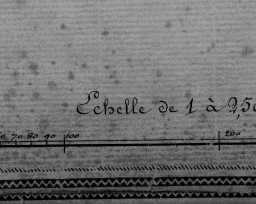 Echelle de 1 à 2,50
70 80 90 100 200